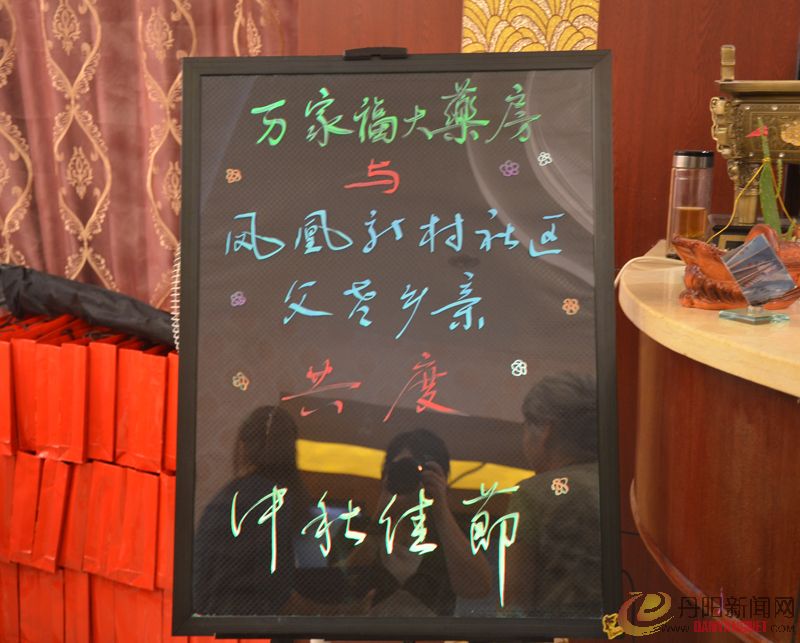 万家福大藥房
与
凤凰新村社区
父老乡亲
共度
中秋佳節
丹阳新闻网